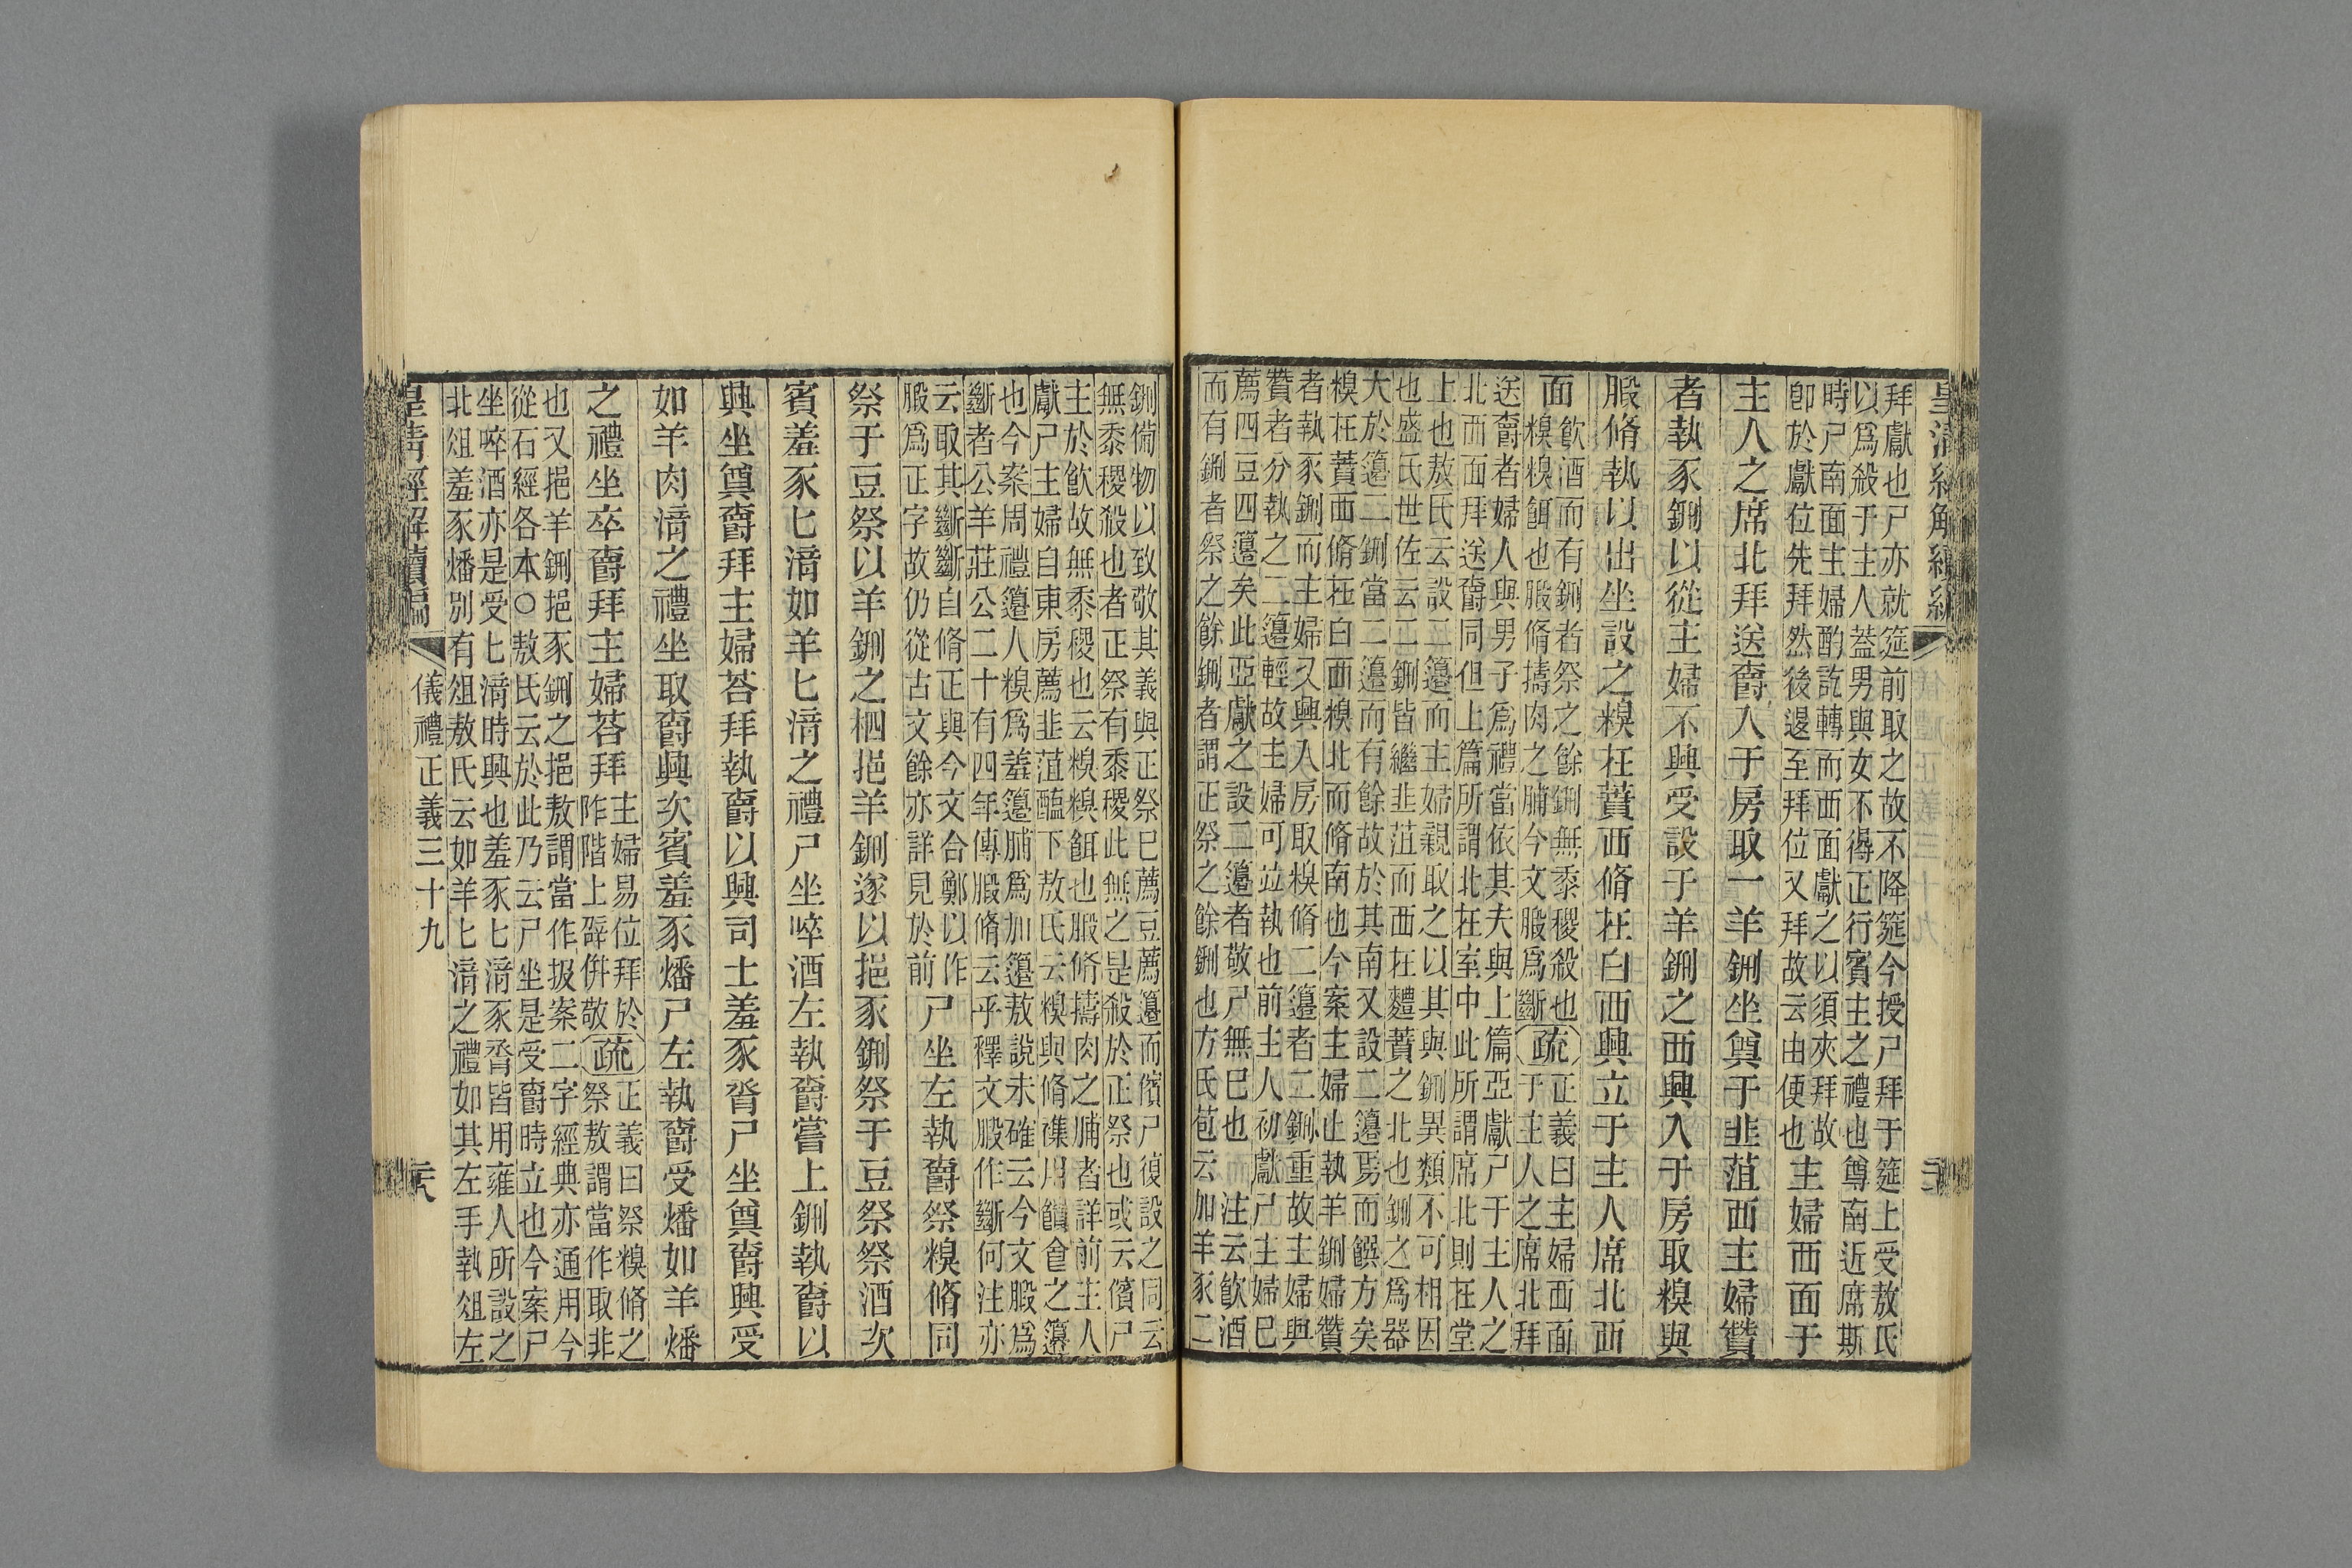 皇清經解續編
拜獻也尸亦就筵前取之故不降筵今授尸拜于筵上受敖氏
以爲殺于主人蓋男與女不得正行賓主之禮也尊南近席斯
時尸南面主婦酌訖轉而西面獻之以須夾拜故
卽於獻位先拜然後退至拜位又拜故云由便也
主婦西面于
主人之席北拜送爵入于房取一羊鉶坐奠于韭菹西主婦贊
者執豕鉶以從主婦不興受設于羊鉶之西興入于房取糗與
腶脩執以出坐設之糗在蕡西脩在白西興立于主人席北西
面
飮酒而有鉶者祭之餘鉶無黍稷殺也
糗糗餌也腶脩擣肉之脯今文腶爲斷
疏
正義曰主婦西面
于主人之席北拜
送爵者婦人與男子爲禮當依其夫與上篇亞獻尸于主人之
北西面拜送爵同但上篇所謂北在室中此所謂席北則在堂
上也敖氏云設二籩而主婦親取之以其與鉶異類不可相因
也盛氏世佐云二鉶皆繼韭菹而西在麷蕡之北也鉶之爲器
大於籩二鉶當二籩而有餘故於其南又設二籩焉而饌方矣
糗在蕡西脩在白西糗北而脩南也今案主婦止執羊鉶婦贊
者執豕鉶而主婦又興入房取糗脩二籩者二鉶重故主婦與
贊者分執之二籩輕故主婦可竝執也前主人初獻尸主婦巳
薦四豆四籩矣此亞獻之設二籩者敬尸無巳也　注云飮酒
而有鉶者祭之餘鉶者謂正祭之餘鉶也方氏苞云加羊豕二
鉶備物以致敬其義與正祭巳薦豆薦籩而儐尸復設之同云
無黍稷殺也者正祭有黍稷此無之是殺於正祭也或云儐尸
主於飮故無黍稷也云糗糗餌也腶脩擣肉之脯者詳前主人
獻尸主婦自東房薦韭菹醢下敖氏云糗與脩襍用饋食之籩
也今案周禮籩人糗爲羞籩脯爲加籩敖說未確云今文腶爲
斷者公羊莊公二十有四年傳腶脩云乎釋文腶作斷何注亦
云取其斷斷自脩正與今文合鄭以作
腶爲正字故仍從古文餘亦詳見於前
尸坐左執爵祭糗脩同
祭于豆祭以羊鉶之柶挹羊鉶遂以挹豕鉶祭于豆祭祭酒次
賓羞豕匕湇如羊匕湇之禮尸坐啐酒左執爵嘗上鉶執爵以
興坐奠爵拜主婦荅拜執爵以興司士羞豕脀尸坐奠爵興受
如羊肉湇之禮坐取爵興次賓羞豕燔尸左執爵受燔如羊燔
之禮坐卒爵拜主婦荅拜
主婦易位拜於
阼階上辟倂敬
疏
正義曰祭糗脩之
祭敖謂當作取非
也又挹羊鉶挹豕鉶之挹敖謂當作扱案二字經典亦通用今
從石經各本○敖氏云於此乃云尸坐是受爵時立也今案尸
坐啐酒亦是受匕湇時興也羞豕匕湇豕脀皆用雍人所設之
北俎羞豕燔別有俎敖氏云如羊匕湇之禮如其左手執俎左
皇清經解續編
儀禮正義三十九